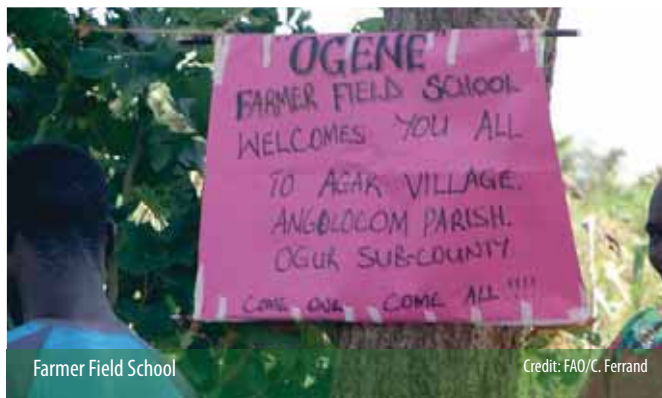 "OGENE"
FARMER FIELD SCHOOL
WELCOMES YOU ALL
TO AGAK VILLAGE.
ANGOLOCOM PARISH.
OGUR SUB-COUNTY.
COME ONE COME ALL !!!!
Farmer Field School
Credit: FAO/C. Ferrand